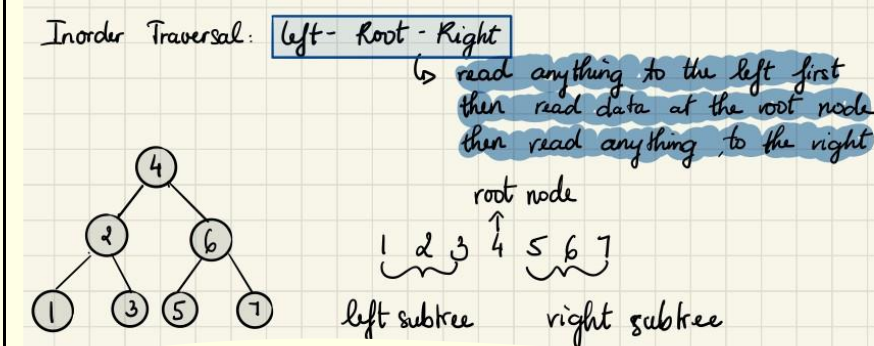 Inorder Traversal: Left - Root - Right
read anything to the left first
then read data at the root node
then read anything to the right
root node
1 2 3 4 5 6 7
left subtree right subtree
4
2 6
1 3 5 7